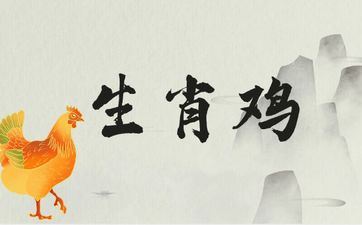 生肖鸡